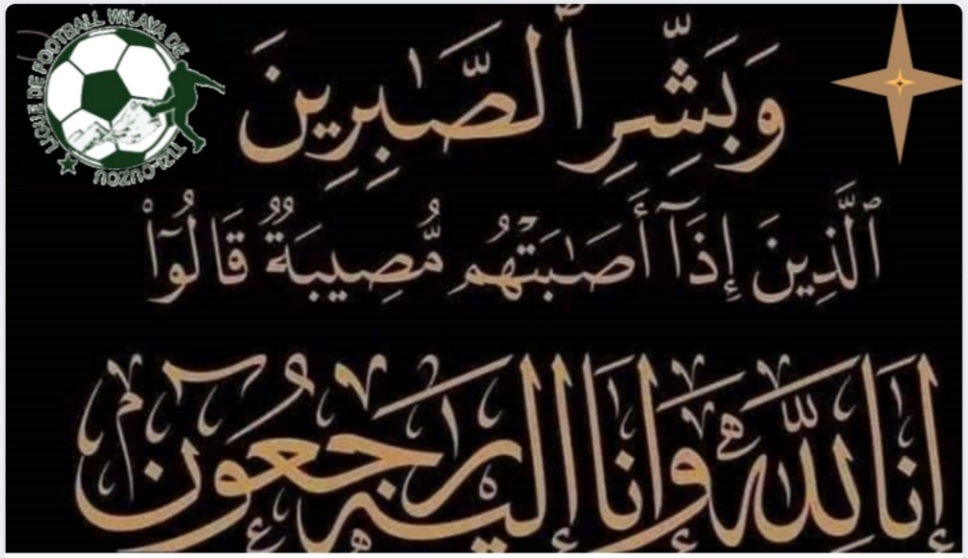 LIGUE DE FOOTBALL WILAYA DE
TIZI-OUZOU
وَبَشِّرِ ٱلصَّٰبِرِينَ
ٱلَّذِينَ إِذَآ أَصَٰبَتْهُم مُّصِيبَةٌ قَالُوٓا۟
إنا لله وإنا إليه راجعون